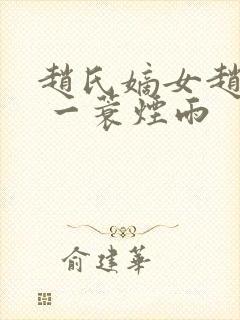 趙氏嫡女趙
一蓑煙雨
俞建華